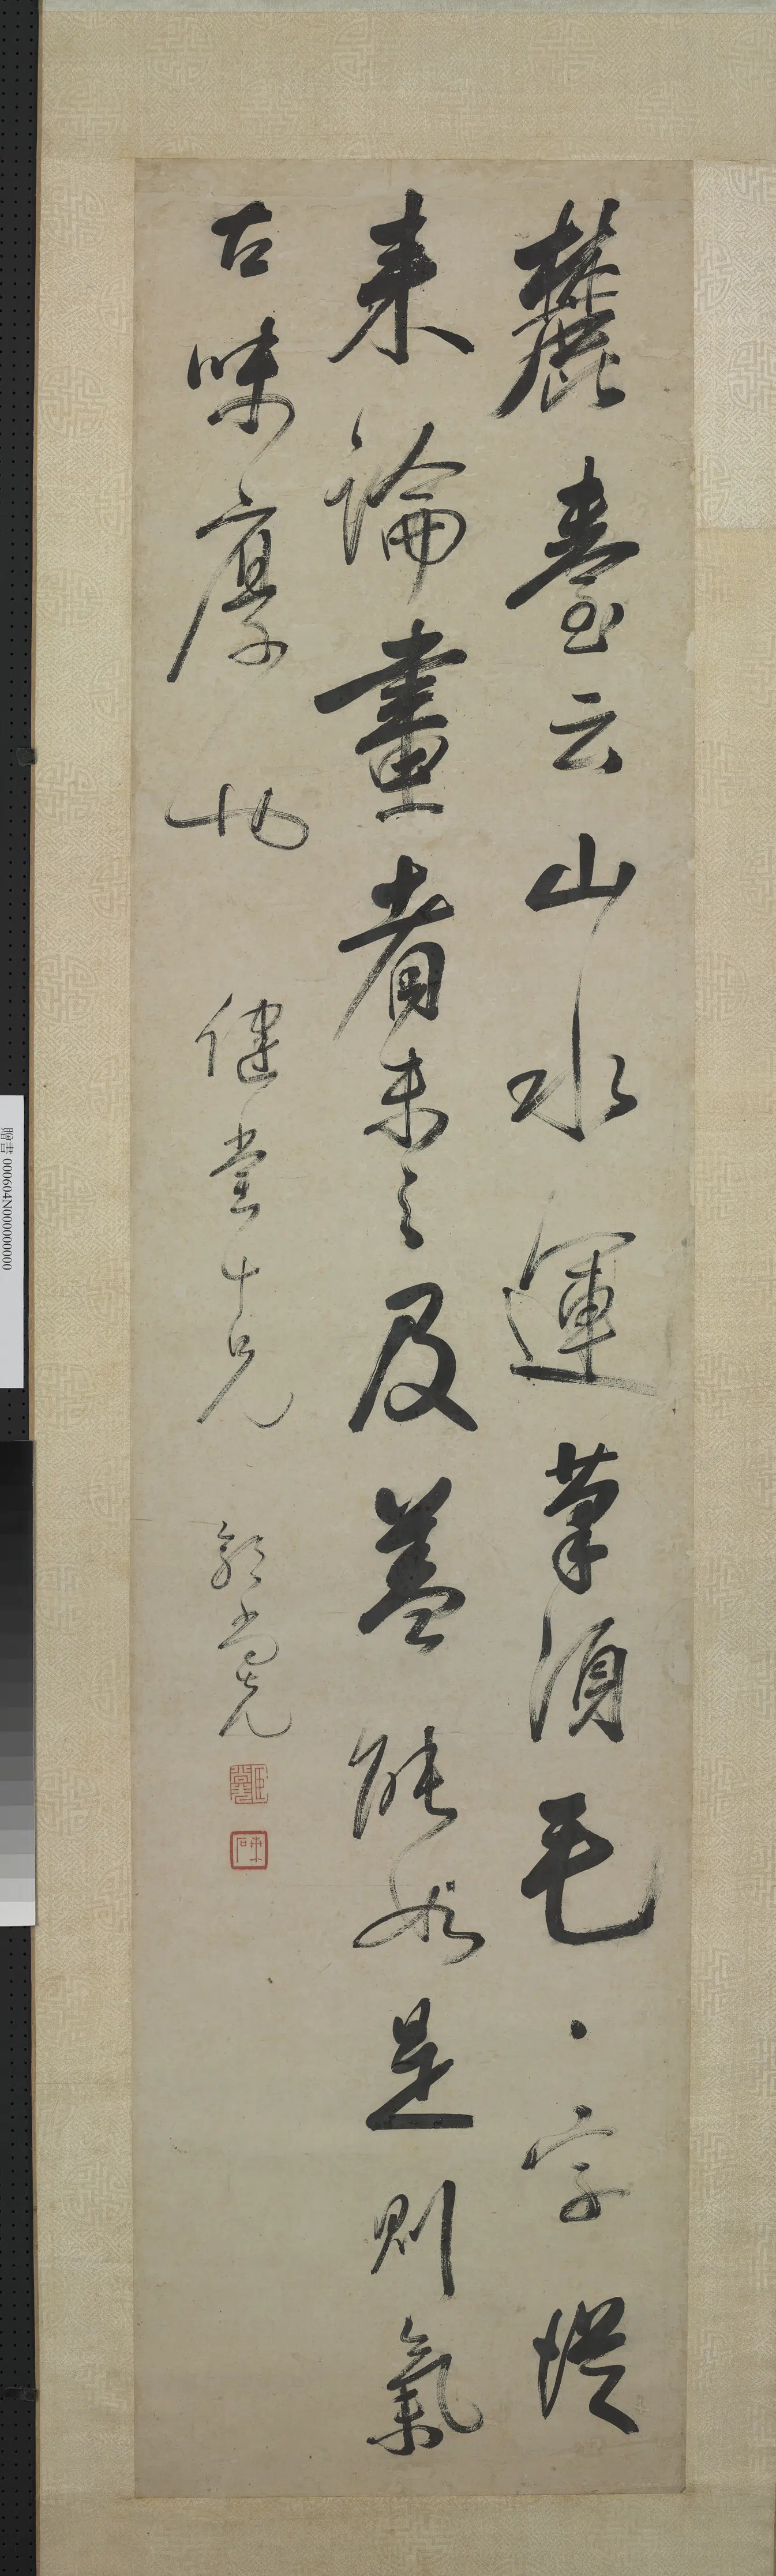 麓臺云山水運筆須毛毛字從
來論畫者未之及蓋能如是則氣
古味厚也 健堂十兄 郭尚先
贈書 000604N000000000